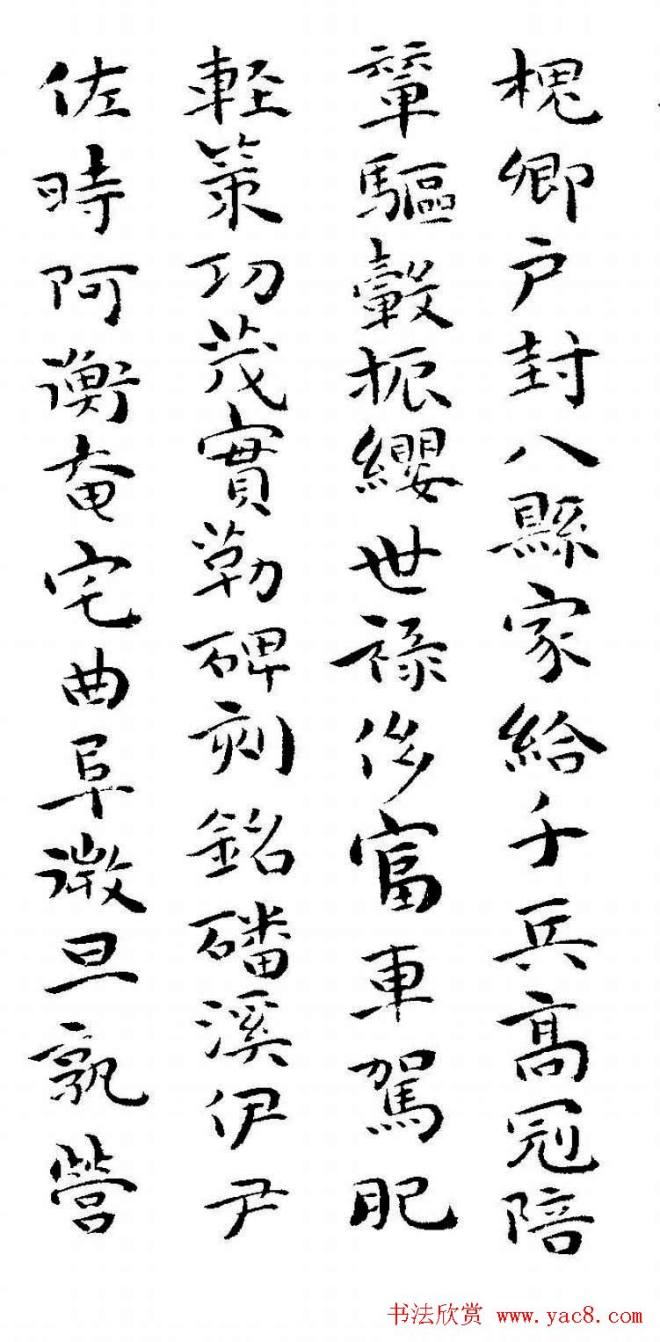 槐卿户封八縣家給千兵高冠陪
輦驅轂振纓世禄侈富車駕肥
軽策功茂實勒碑刻銘磻溪伊尹
佐時阿衡奄宅曲阜微旦孰營
书法欣赏 www.yac8.com